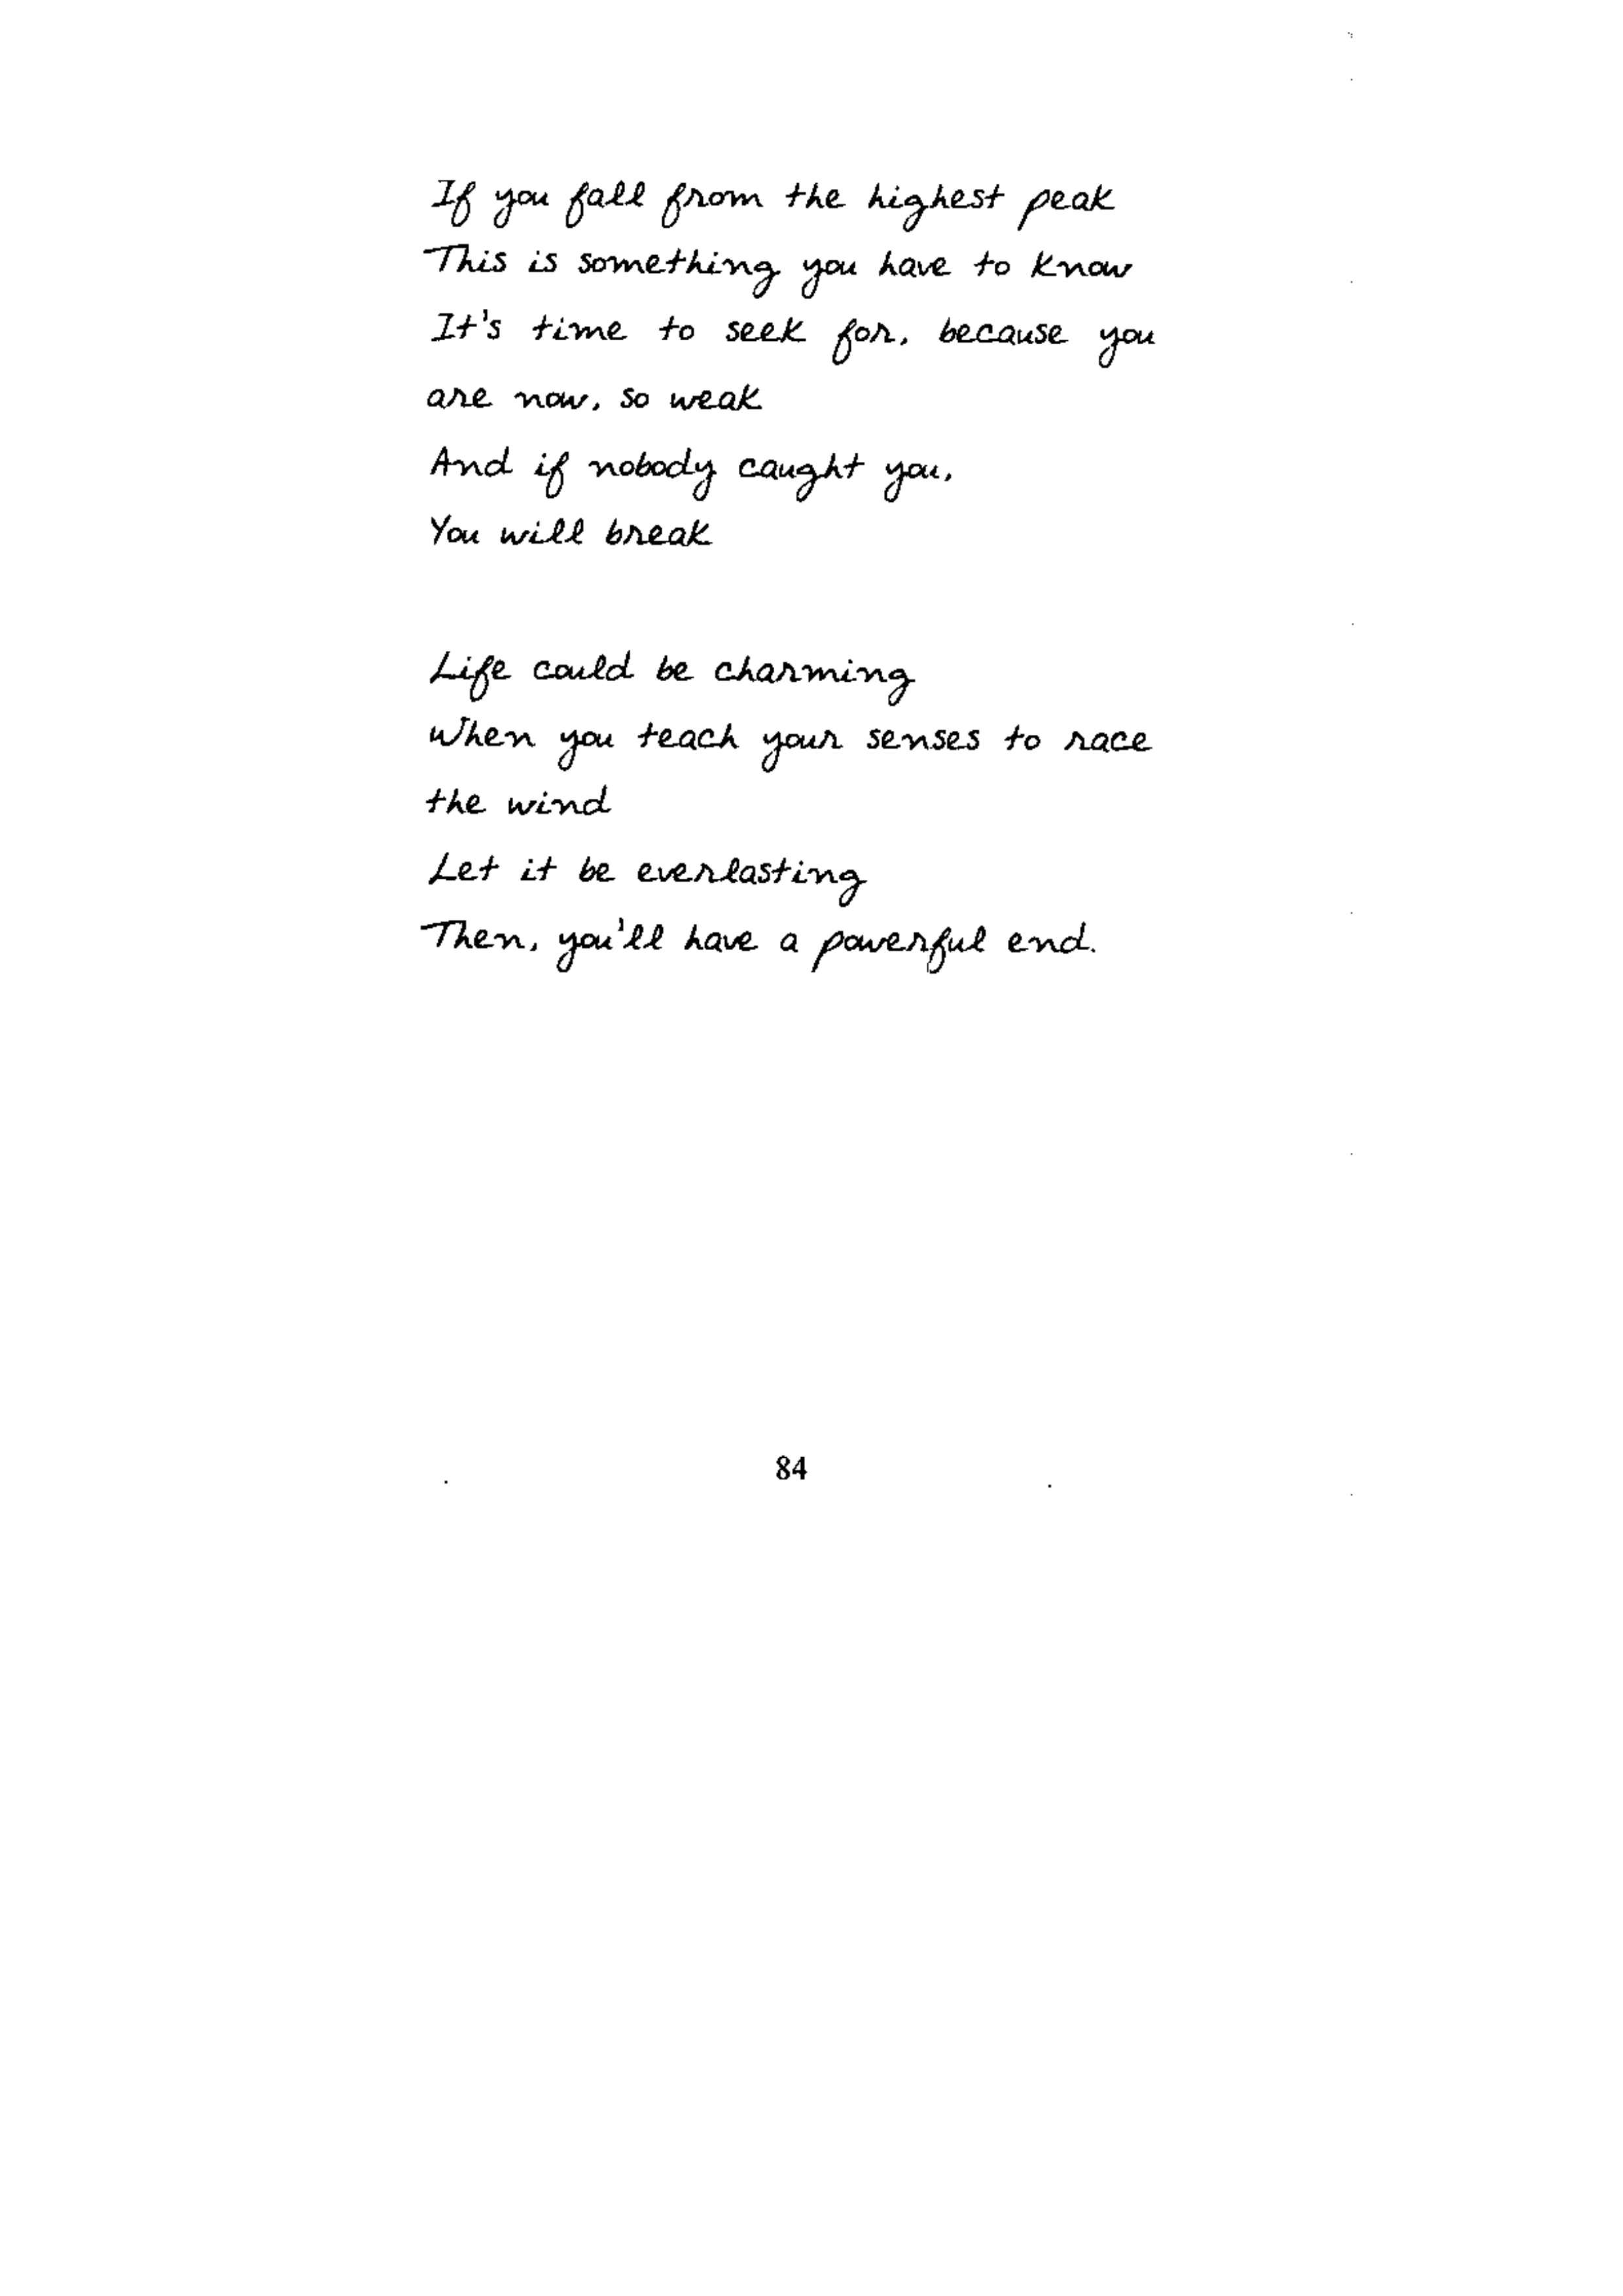 If you fall from the highest peak
This is something you have to know
It's time to seek for, because you
are now, so weak
And if nobody caught you,
You will break
Life could be charming
When you teach your senses to race
the wind
Let it be everlasting
Then, you'll have a powerful end.
84